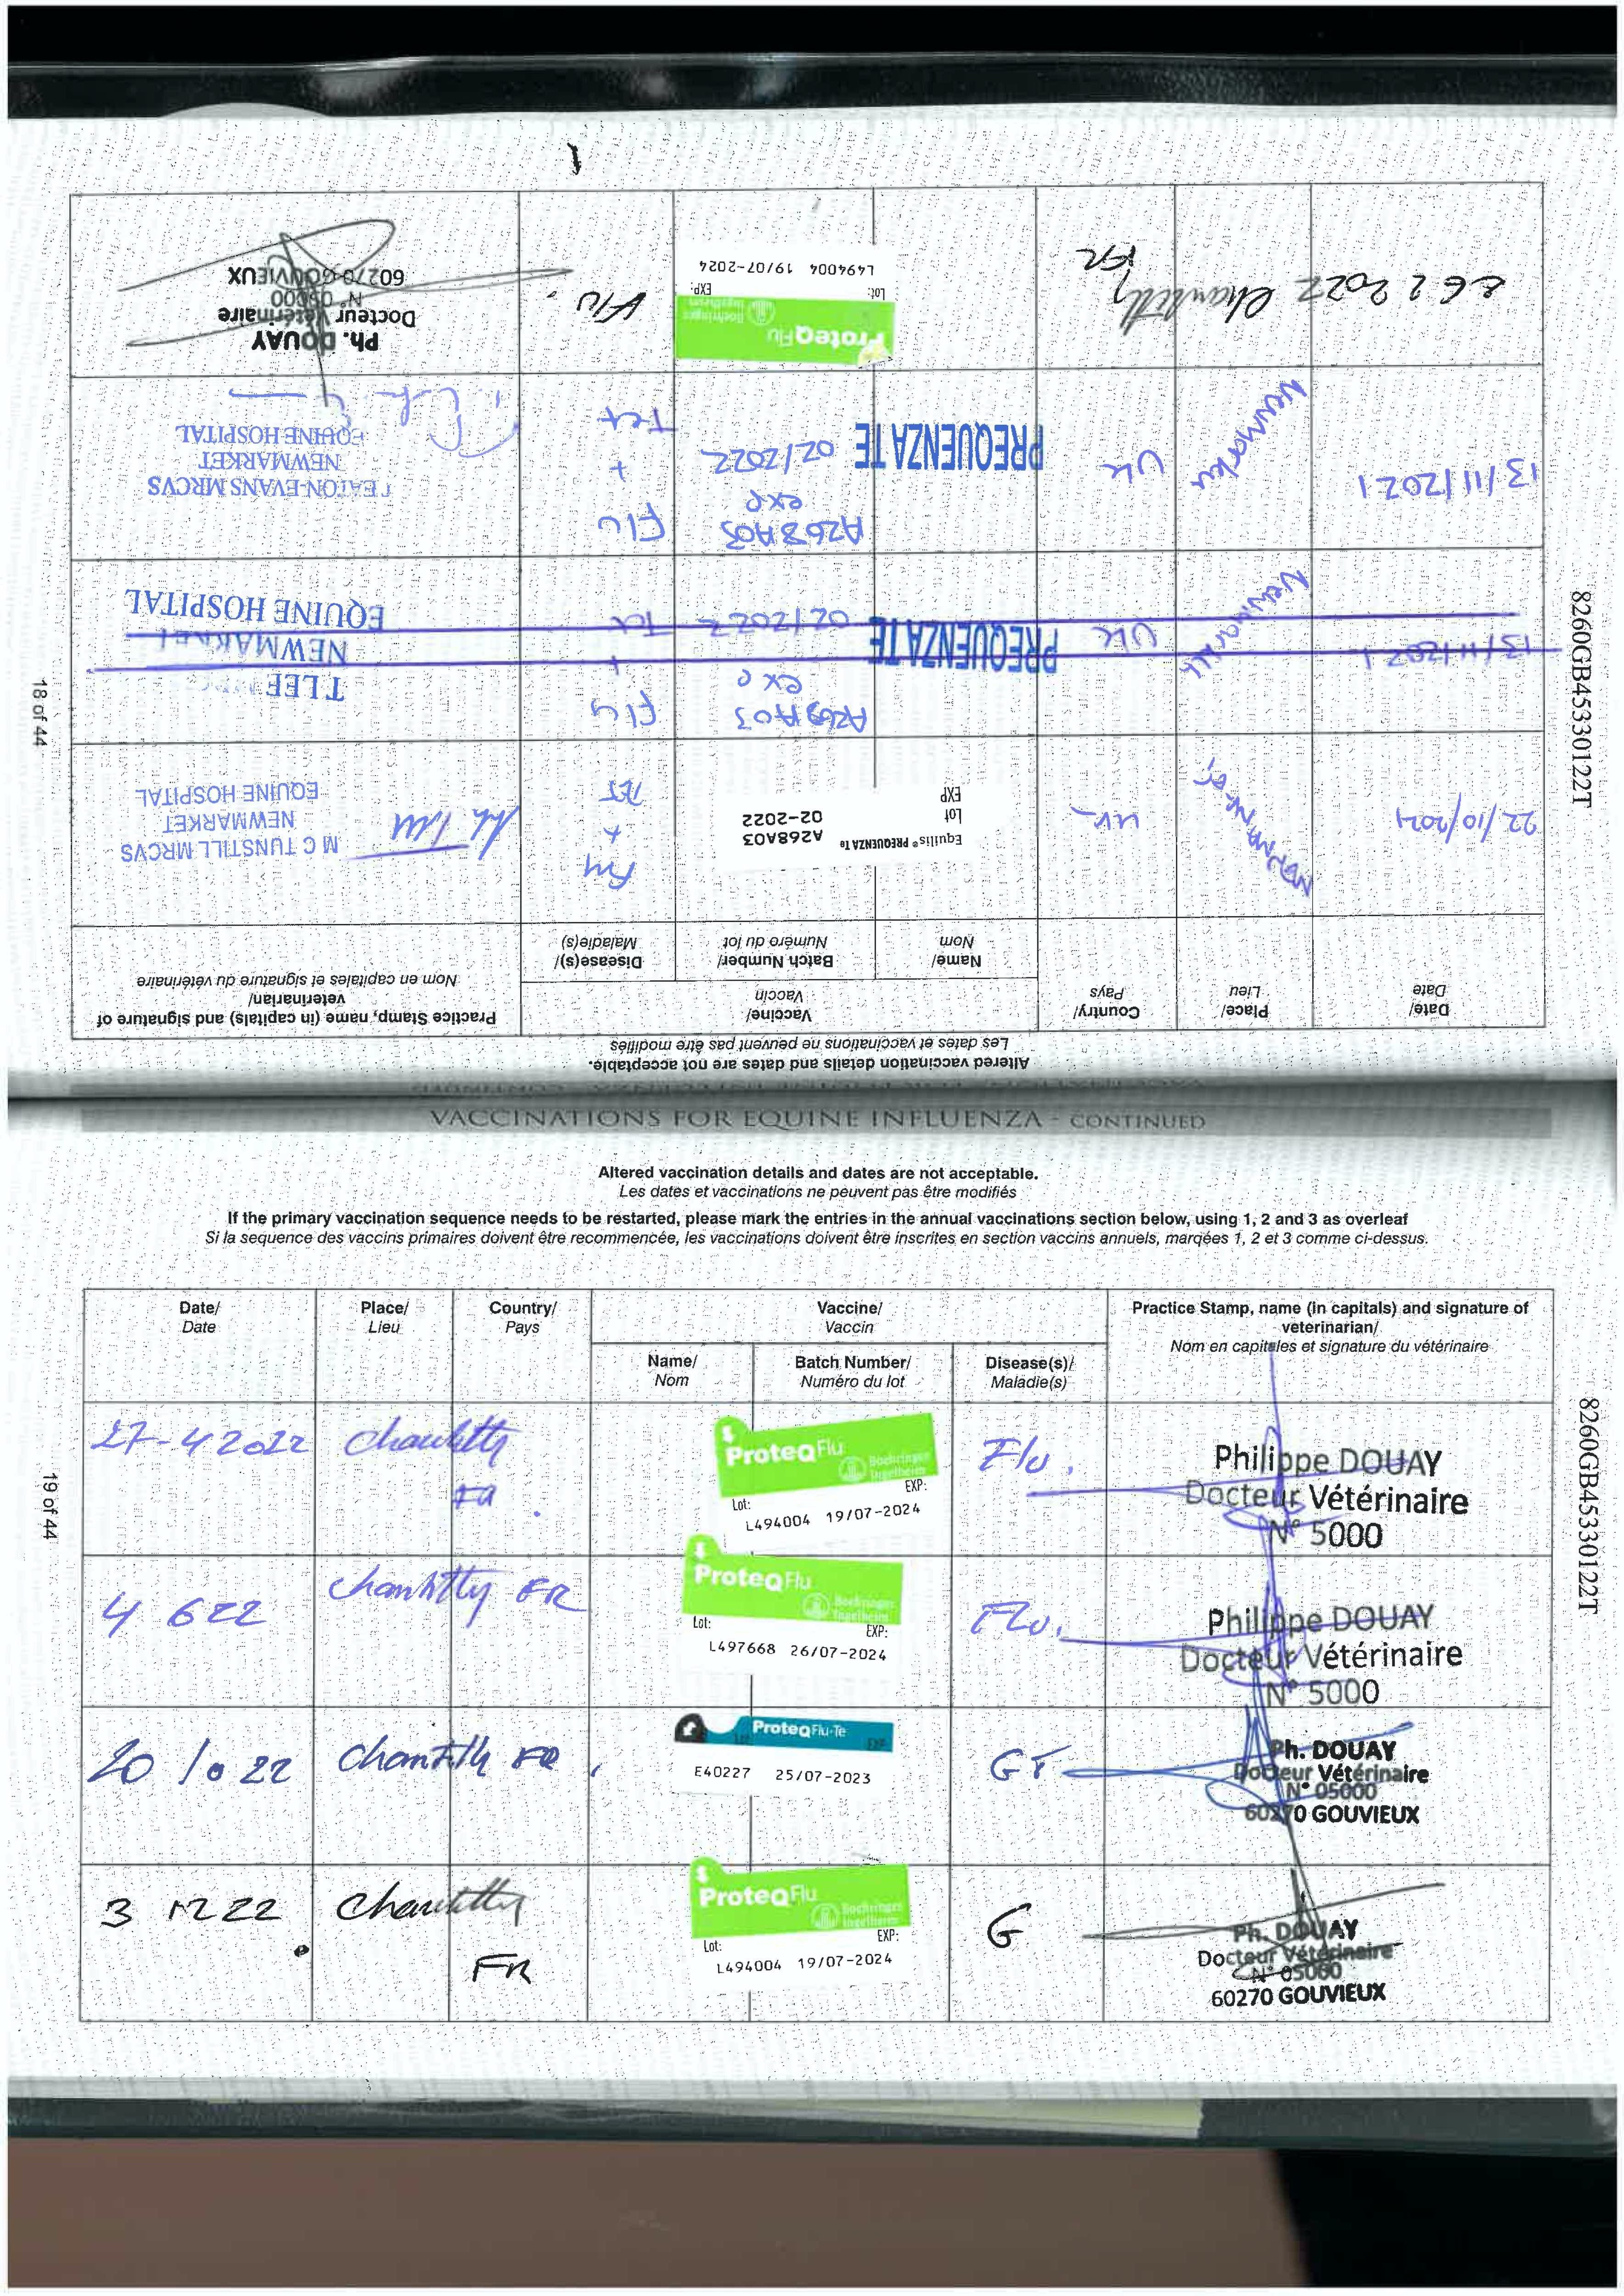 18 of 44
8260GB45330122T
Altered vaccination details and dates are not acceptable.
Les dates et vaccinations ne peuvent pas être modifiés
Date/
Date
Place/
Lieu
Country/
Pays
Vaccine/
Vaccin
Name/
Nom
Batch Number/
Numéro du lot
Disease(s)/
Maladie(s)
Practice Stamp, name (in capitals) and signature of
veterinarian/
Nom en capitales et signature du vétérinaire
22/10/2021
NEWMARKET
UK
Equilis® PREQUENZA Te
Lot
EXP
A268A03
02-2022
Flu
+
TET
M C TUNSTILL MRCVS
NEWMARKET
EQUINE HOSPITAL
13/11/2021
Newmarket
UK
PREQUENZA TE
A269A03
exp
02/2022
Flu
+
Tet
T LEE
NEWMARKET
EQUINE HOSPITAL
13/11/2021
Newmarket
UK
PREQUENZA TE
A268A03
exp
02/2022
Flu
+
Tet
EATON-EVANS MRCVS
NEWMARKET
EQUINE HOSPITAL
2022
Chantilly
FR
ProteqFlu
Boehringer
Ingelheim
Lot:
EXP:
L494004 19/07-2024
Flu.
Ph. DOUAY
Docteur Vétérinaire
N° 05000
60270 GOUVIEUX
1
VACCINATIONS FOR EQUINE INFLUENZA - CONTINUED
Altered vaccination details and dates are not acceptable.
Les dates et vaccinations ne peuvent pas être modifiés
If the primary vaccination sequence needs to be restarted, please mark the entries in the annual vaccinations section below, using 1, 2 and 3 as overleaf
Si la sequence des vaccins primaires doivent être recommencée, les vaccinations doivent être inscrites en section vaccins annuels, marqées 1, 2 et 3 comme ci-dessus.
Date/
Date
Place/
Lieu
Country/
Pays
Vaccine/
Vaccin
Name/
Nom
Batch Number/
Numéro du lot
Disease(s)/
Maladie(s)
Practice Stamp, name (in capitals) and signature of
veterinarian/
Nom en capitales et signature du vétérinaire
27-4 2022
Chantilly
FR
ProteqFlu
Boehringer
Ingelheim
Lot:
EXP:
L494004 19/07-2024
Flu.
Philippe DOUAY
Docteur Vétérinaire
N° 5000
4 6 22
Chantilly FR
ProteqFlu
Boehringer
Ingelheim
Lot:
EXP:
L497668 26/07-2024
Flu.
Philippe DOUAY
Docteur Vétérinaire
N° 5000
20 10 22
Chantilly FR
ProteqFlu-Te
Lot:
EXP:
E40227 25/07-2023
GT
Ph. DOUAY
Docteur Vétérinaire
N° 05000
60270 GOUVIEUX
3 12 22
Chantilly
FR
ProteqFlu
Boehringer
Ingelheim
Lot:
EXP:
L494004 19/07-2024
G
Ph. DOUAY
Docteur Vétérinaire
N° 05000
60270 GOUVIEUX
19 of 44
8260GB45330122T